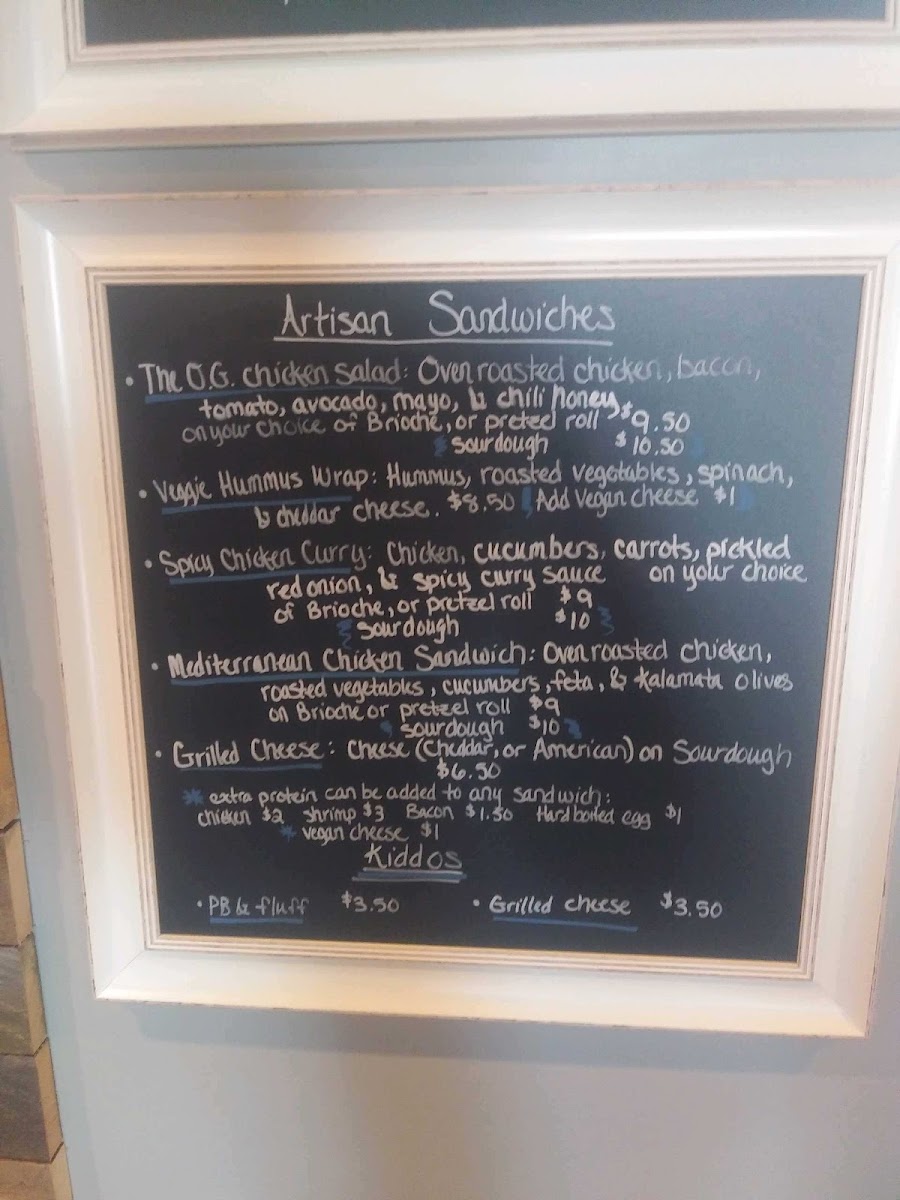 Artisan Sandwiches
• The O.G. chicken salad: Oven roasted chicken, bacon,
tomato, avocado, mayo, & chili honey
on your choice of Brioche, or pretzel roll $9.50
sourdough $10.50
• Veggie Hummus Wrap: Hummus, roasted vegetables, spinach,
& cheddar cheese. $8.50 Add Vegan cheese $1
• Spicy Chicken Curry: Chicken, cucumbers, carrots, pickled
red onion, & spicy curry sauce on your choice
of Brioche, or pretzel roll $9
sourdough $10
• Mediterranean Chicken Sandwich: Oven roasted chicken,
roasted vegetables, cucumbers, feta, & Kalamata olives
on Brioche or pretzel roll $9
sourdough $10
• Grilled Cheese: Cheese (Cheddar, or American) on Sourdough
$6.50
* extra protein can be added to any sandwich:
chicken $2 shrimp $3 Bacon $1.50 Hard boiled egg $1
* vegan cheese $1
Kiddos
• PB & fluff $3.50 • Grilled cheese $3.50